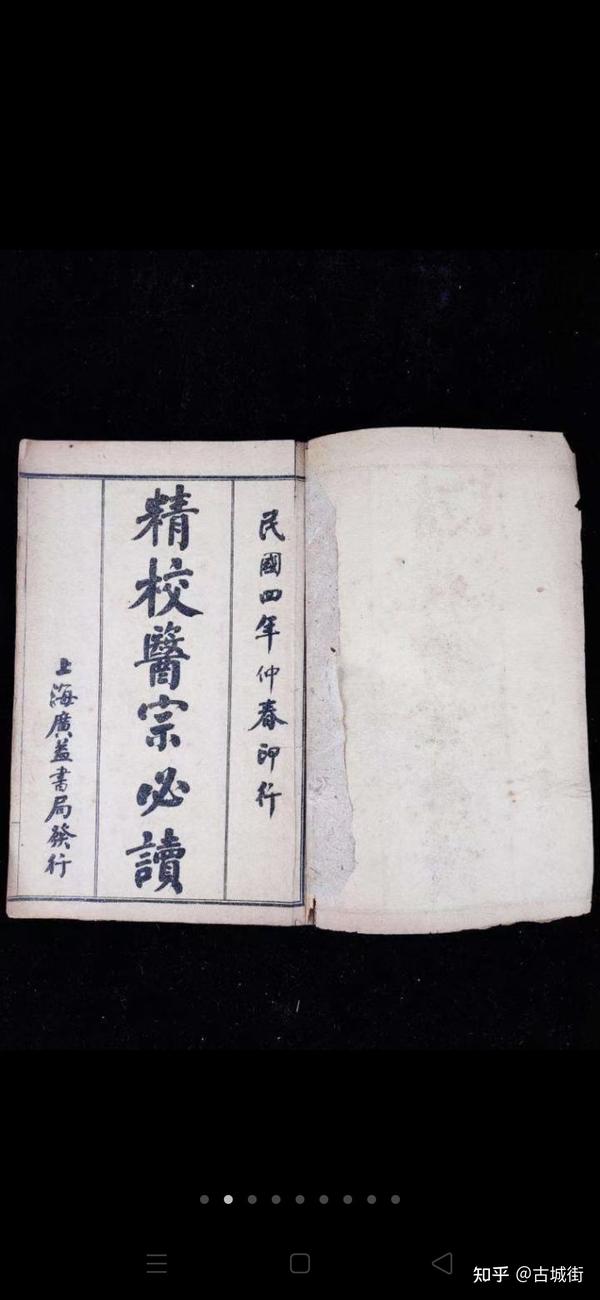 民國四年仲春印行
精校醫宗必讀
上海廣益書局發行
知乎 @古城街